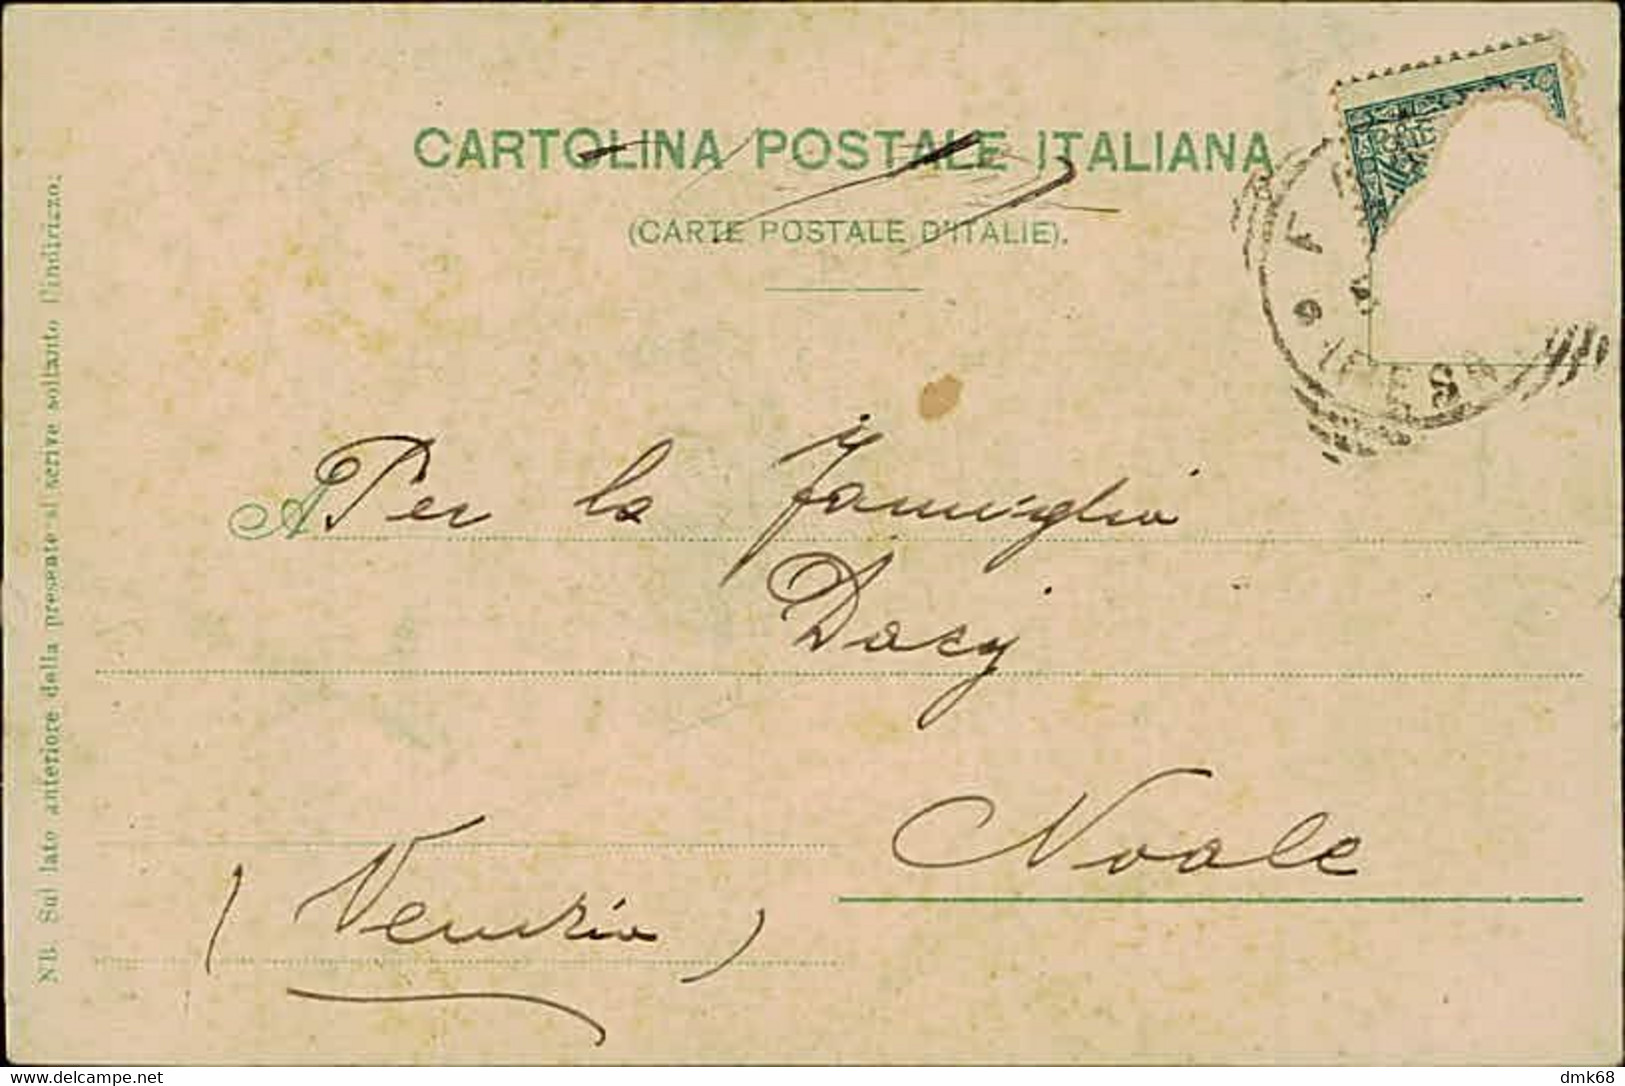 CARTOLINA POSTALE ITALIANA
(CARTE POSTALE D'ITALIE).
NB. Sul lato anteriore della presente si scrive soltanto l'indirizzo.
A Per la famiglia
Dacy
Noale
(Venezia)
delcampe.net
dmk68